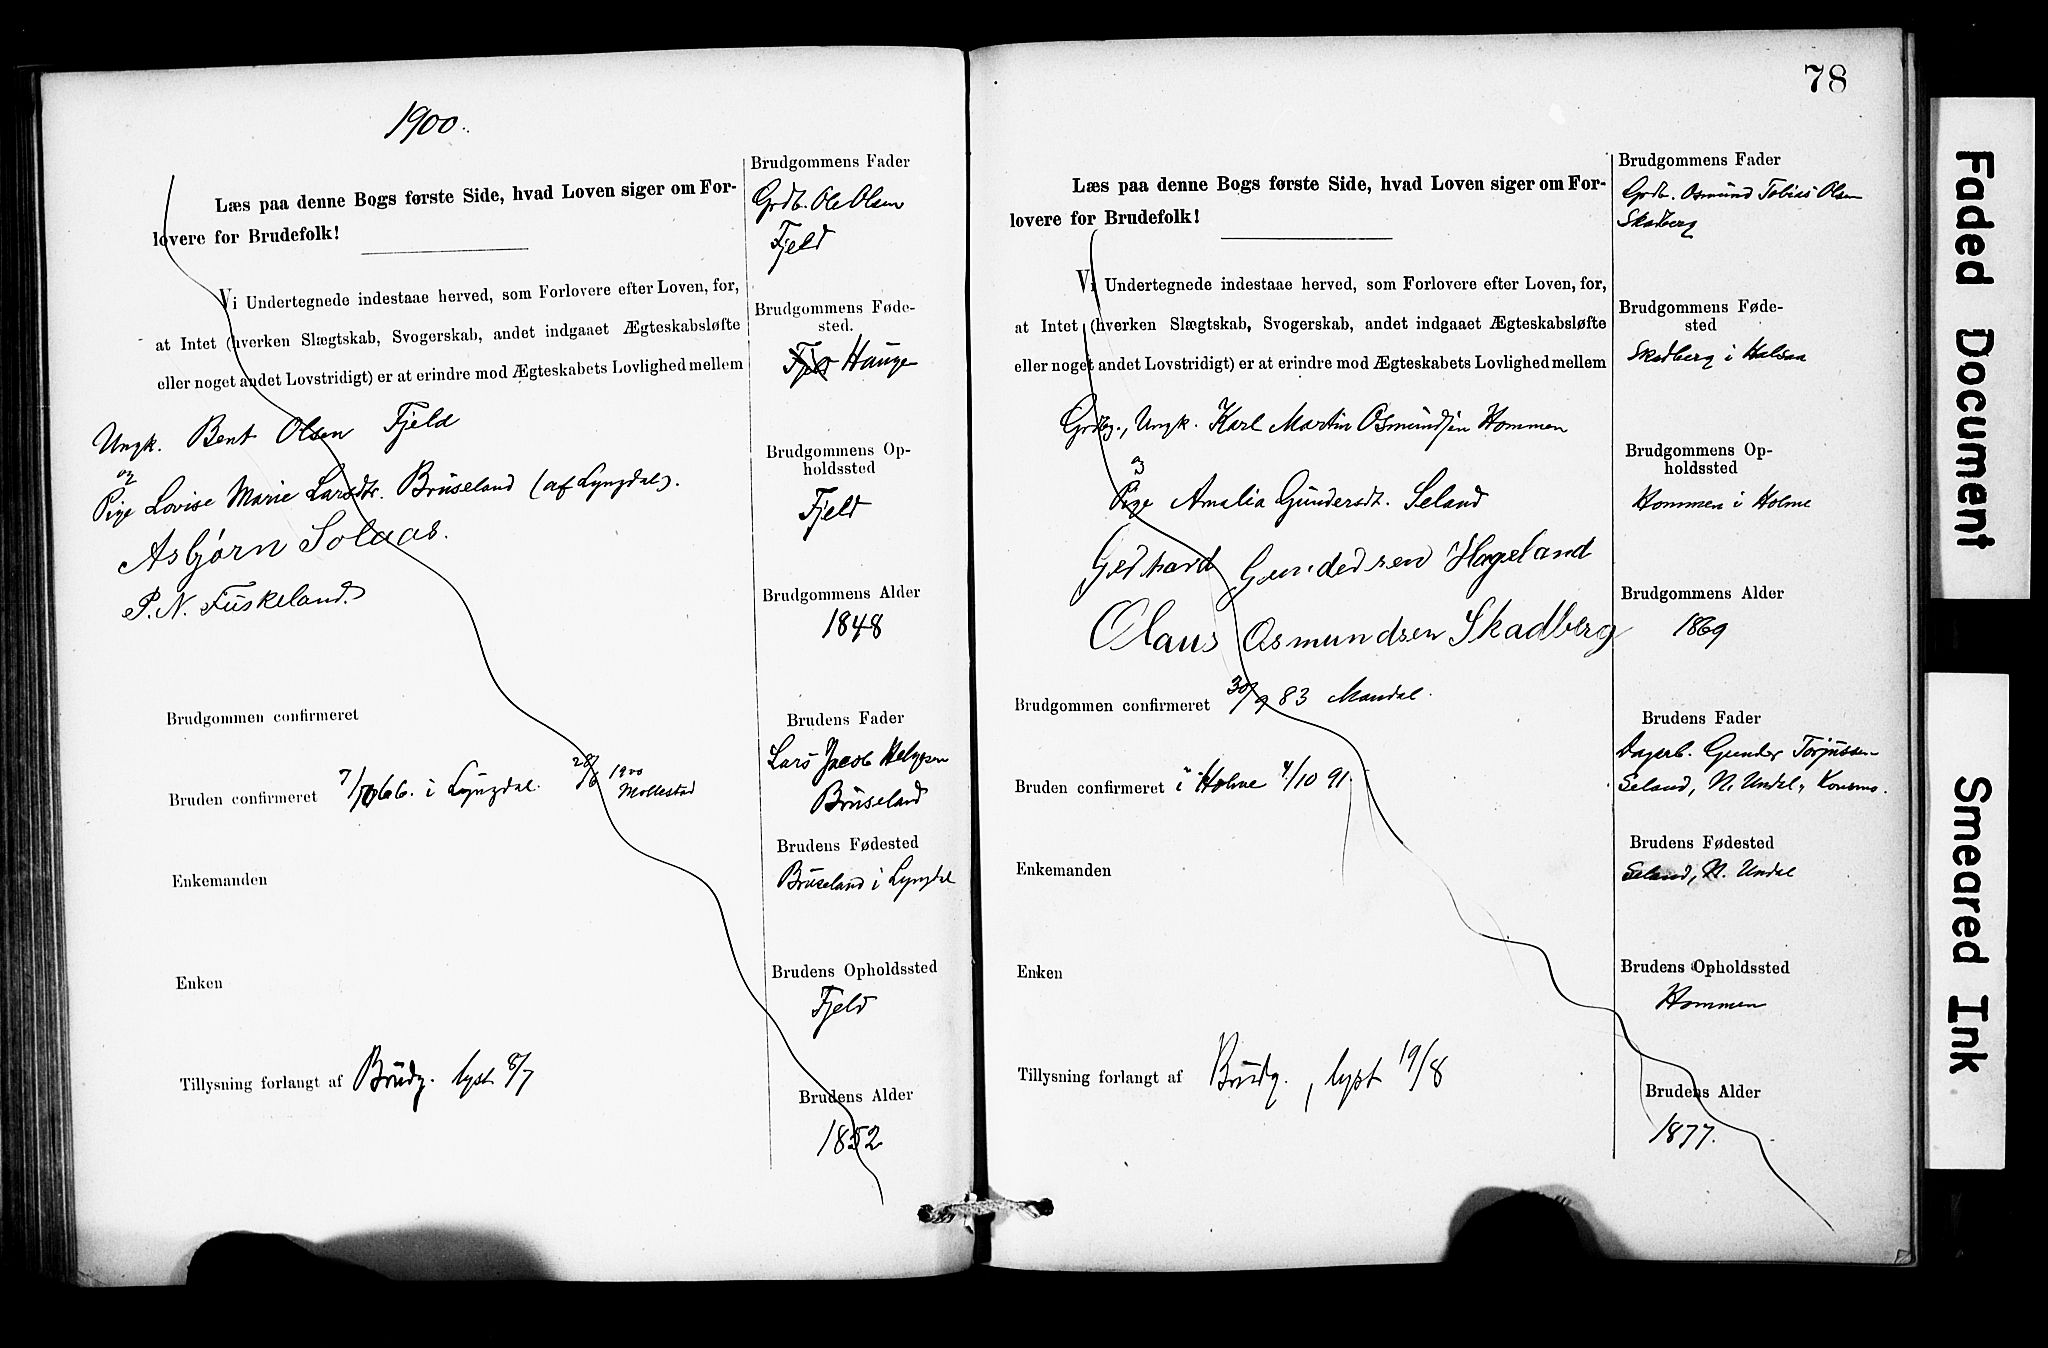 1900.
Læs paa denne Bogs første Side, hvad Loven siger om For-
lovere for Brudefolk!
Vi Undertegnede indestaae herved, som Forlovere efter Loven, for,
at Intet (hverken Slægtskab, Svogerskab, andet indgaaet Ægteskabsløfte
eller noget andet Lovstridigt) er at erindre mod Ægteskabets Lovlighed mellem
Ungk. Bent Olsen Fjeld
og
Pige Lovise Marie Larsdtr. Bruseland (af Lyngdal).
Asbjørn Solaas.
P. N. Fuskeland.
Brudgommen confirmeret
Bruden confirmeret 7/10 66. i Lyngdal. 28/6 1900
Mollestad
Enkemanden
Enken
Tillysning forlangt af Brudg. lyst 8/7
Brudgommens Fader
Grdb. Ole Olsen
Fjeld
Brudgommens Føde-
sted.
Hauge
Brudgommens Op-
holdssted
Fjeld
Brudgommens Alder
1848
Brudens Fader
Lars Jacob Helgesen
Bruseland
Brudens Fødested
Bruseland i Lyngdal
Brudens Opholdssted
Fjeld
Brudens Alder
1852
78
Læs paa denne Bogs første Side, hvad Loven siger om For-
lovere for Brudefolk!
Vi Undertegnede indestaae herved, som Forlovere efter Loven, for,
at Intet (hverken Slægtskab, Svogerskab, andet indgaaet Ægteskabsløfte
eller noget andet Lovstridigt) er at erindre mod Ægteskabets Lovlighed mellem
Grdbg., Ungk. Karl Martin Osmundsen Hommen
og
Pige Amalia Gundersdt. Seland
Gerhard Gundersen Hageland
Olaus Osmundsen Skadberg
Brudgommen confirmeret 30/9 83 Mandal.
Bruden confirmeret i Holme 4/10 91
Enkemanden
Enken
Tillysning forlangt af Brudg., lyst 19/8
Brudgommens Fader
Grdb. Osmund Tobias Olsen
Skadberg
Brudgommens Føde-
sted
Skadberg i Halsaa
Brudgommens Op-
holdssted
Hommen i Holme
Brudgommens Alder
1869
Brudens Fader
Dagarb. Gunder Torjussen
Seland, N. Undal, Konsmo.
Brudens Fødested
Seland, N. Undal
Brudens Opholdssted
Hommen
Brudens Alder
1877.
Faded Document
Smeared Ink